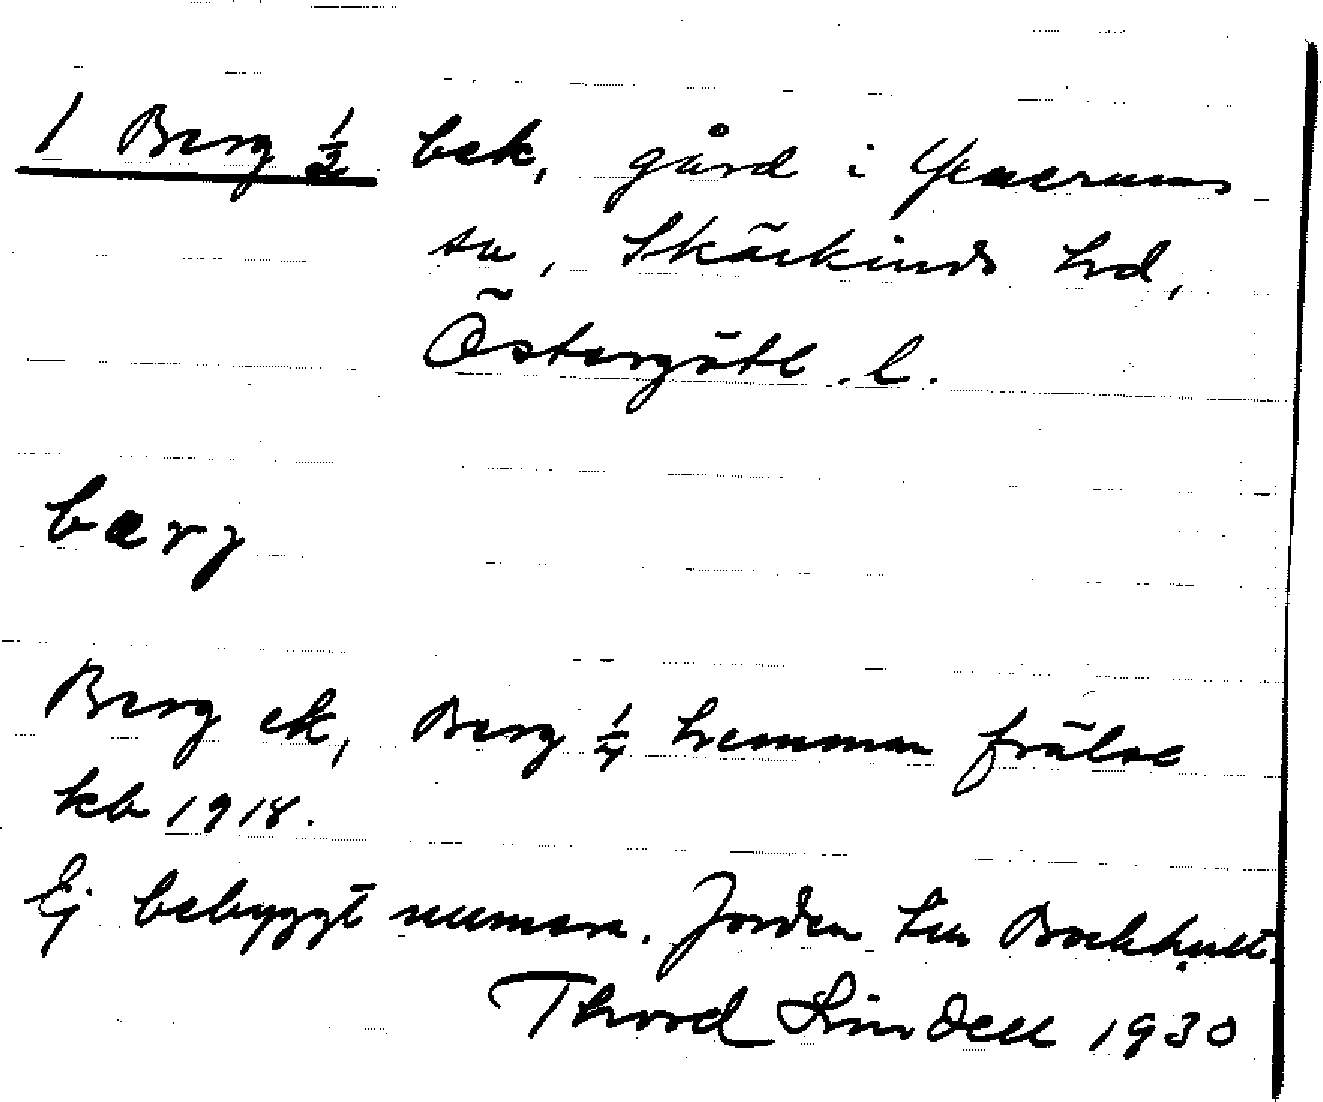 1 Berg 1/2 bek, gård i Yxnerums
sn, Skärkinds hd,
Östergötl. l.
bærj
Berg ek, Berg 1/4 hemman frälse
kb 1918.
Ej bebyggt numera. Jorden t.u. Bockhult.
Thord Lindell 1930